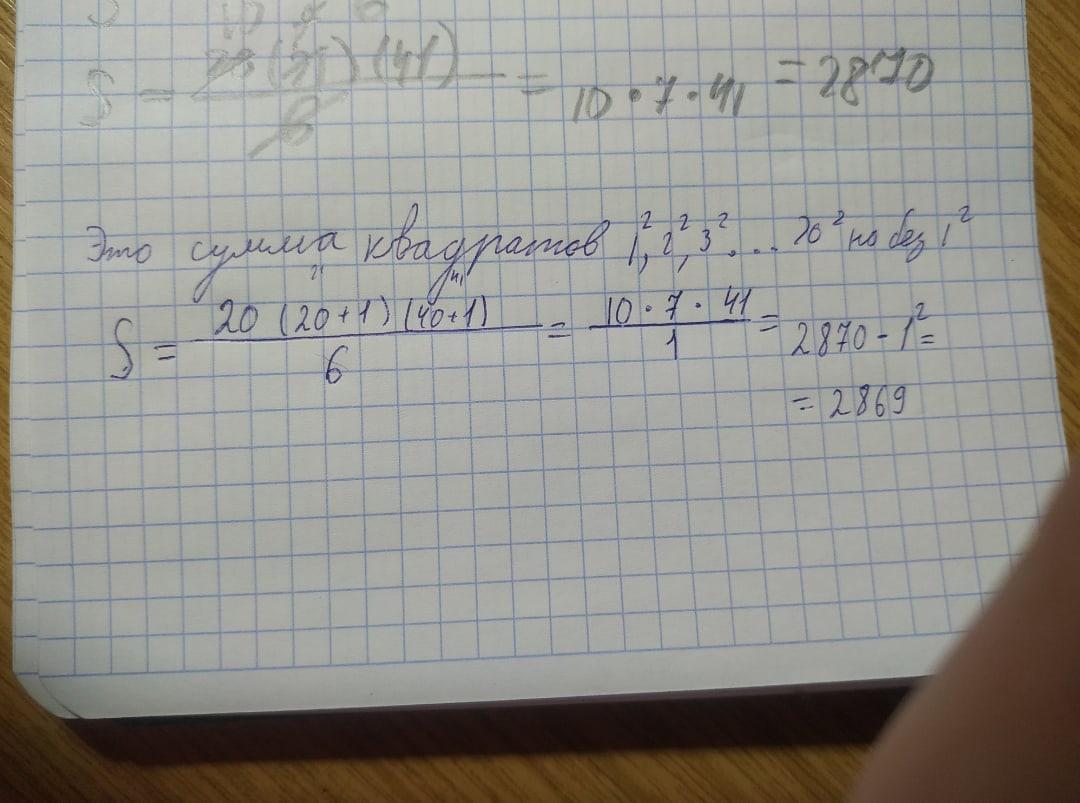 S = 20(21)(41) / 6 = 10·7·41 = 2870
Это сумма квадратов 1², 2², 3² ... 20² но без 1²
21 41
S = 20 (20+1) (40+1) / 6 = 10·7·41 / 1 = 2870 - 1² =
= 2869